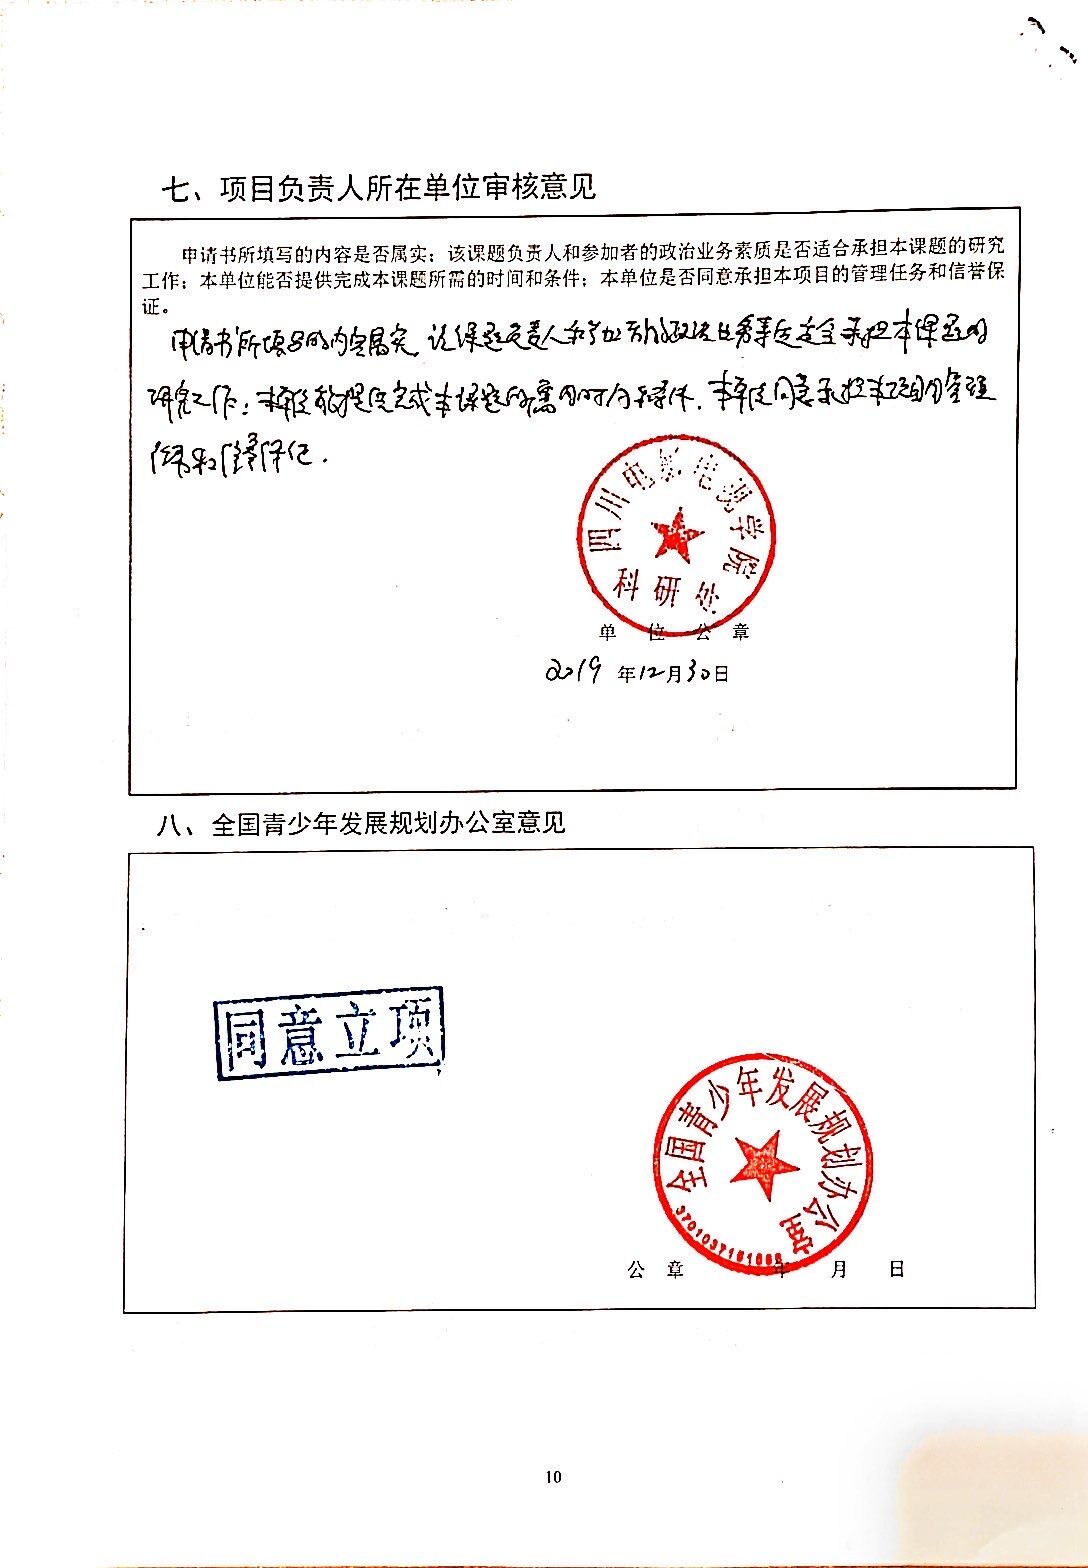 七、项目负责人所在单位审核意见
申请书所填写的内容是否属实；该课题负责人和参加者的政治业务素质是否适合承担本课题的研究
工作；本单位能否提供完成本课题所需的时间和条件；本单位是否同意承担本项目的管理任务和信誉保
证。
申请书所填写的内容属实，该课题负责人和参加者的政治业务素质适合承担本课题的
研究工作；本单位能提供完成本课题所需的时间和条件，本单位同意承担本项目的管理
任务和信誉保证.
四川电影电视学院
科研处
单位公章
2019年12月30日
八、全国青少年发展规划办公室意见
同意立项
全国青少年发展规划办公室
公章 年 月 日
10